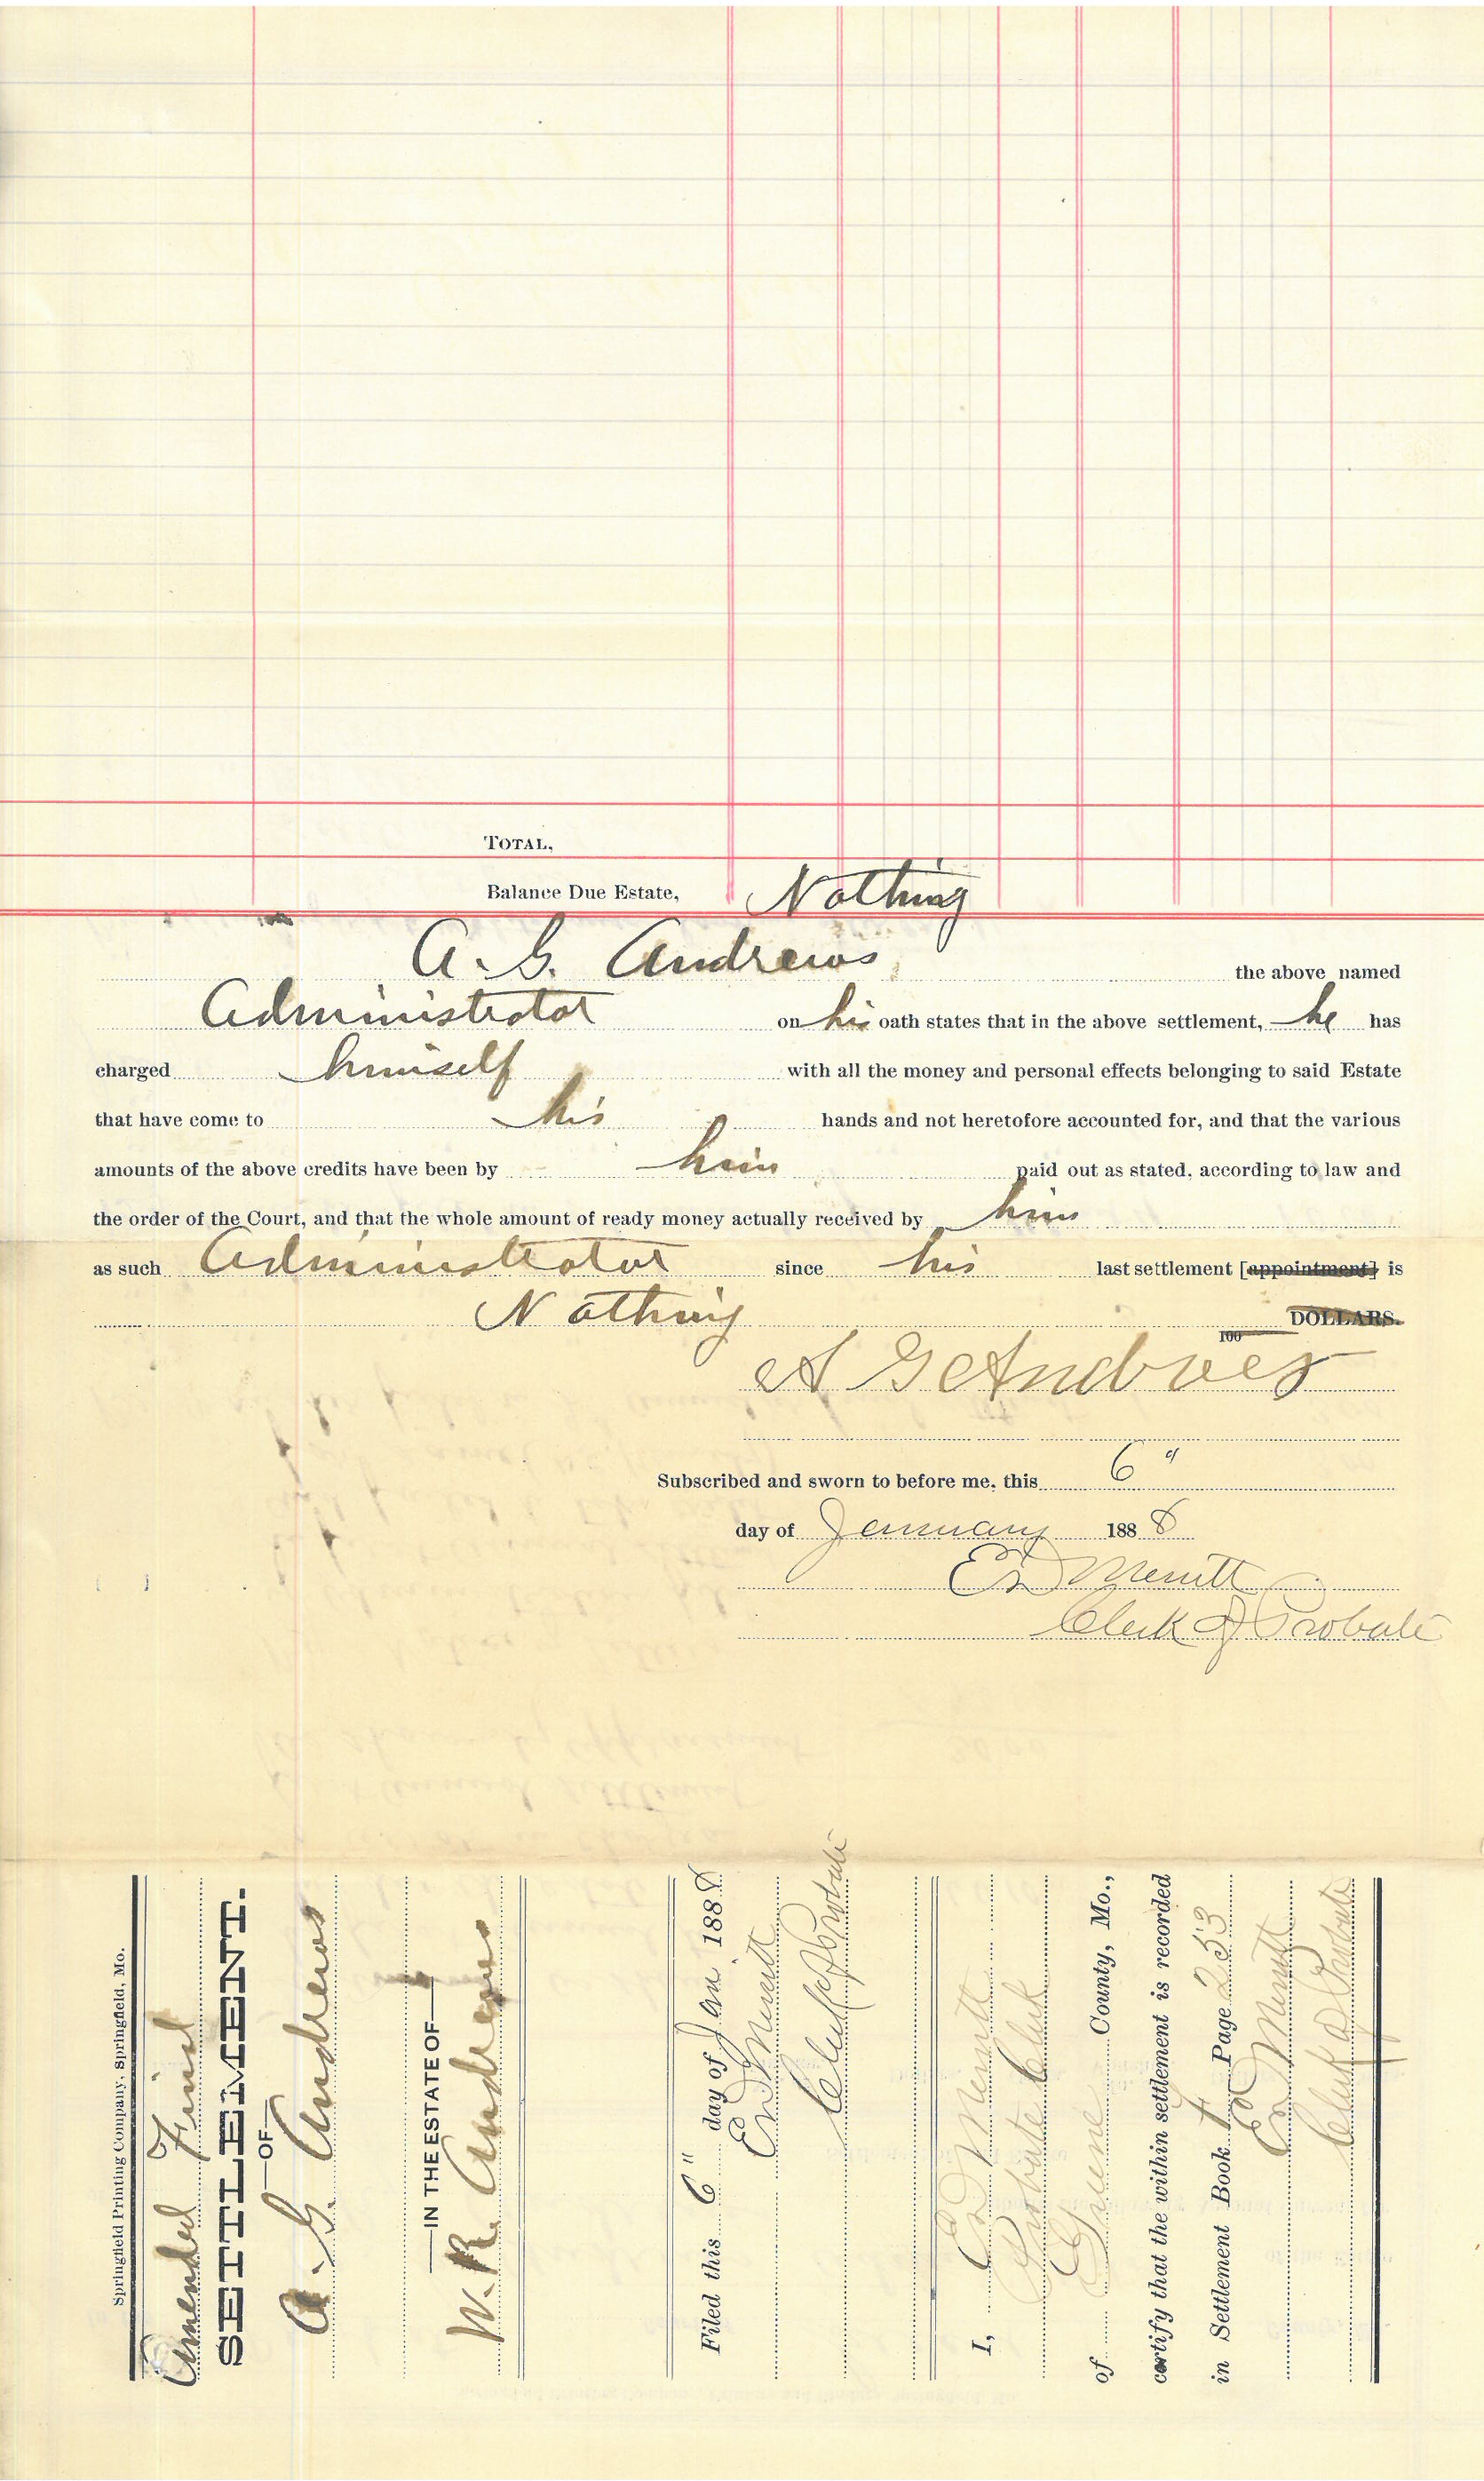 TOTAL,
Balance Due Estate, Nothing
A. G. Andrews the above named
Administrator on his oath states that in the above settlement, he has
charged himself with all the money and personal effects belonging to said Estate
that have come to his hands and not heretofore accounted for, and that the various
amounts of the above credits have been by him paid out as stated, according to law and
the order of the Court, and that the whole amount of ready money actually received by him
as such Administrator since his last settlement [appointment] is
Nothing DOLLARS.
100
A G Andrews
Subscribed and sworn to before me, this 6"
day of January 1888
ED Merritt
Clerk of Probate
Springfield Printing Company, Springfield, Mo.
Amended Final
SETTLEMENT.
—OF—
A. G. Andrews
—IN THE ESTATE OF—
W. R. Andrews
Filed this 6" day of Jan. 1888
ED Merritt
Clerk of Probate
I, ED Merritt
Probate Clerk
of Greene County, Mo.,
certify that the within settlement is recorded
in Settlement Book F Page 253
ED Merritt
Clerk of Probate